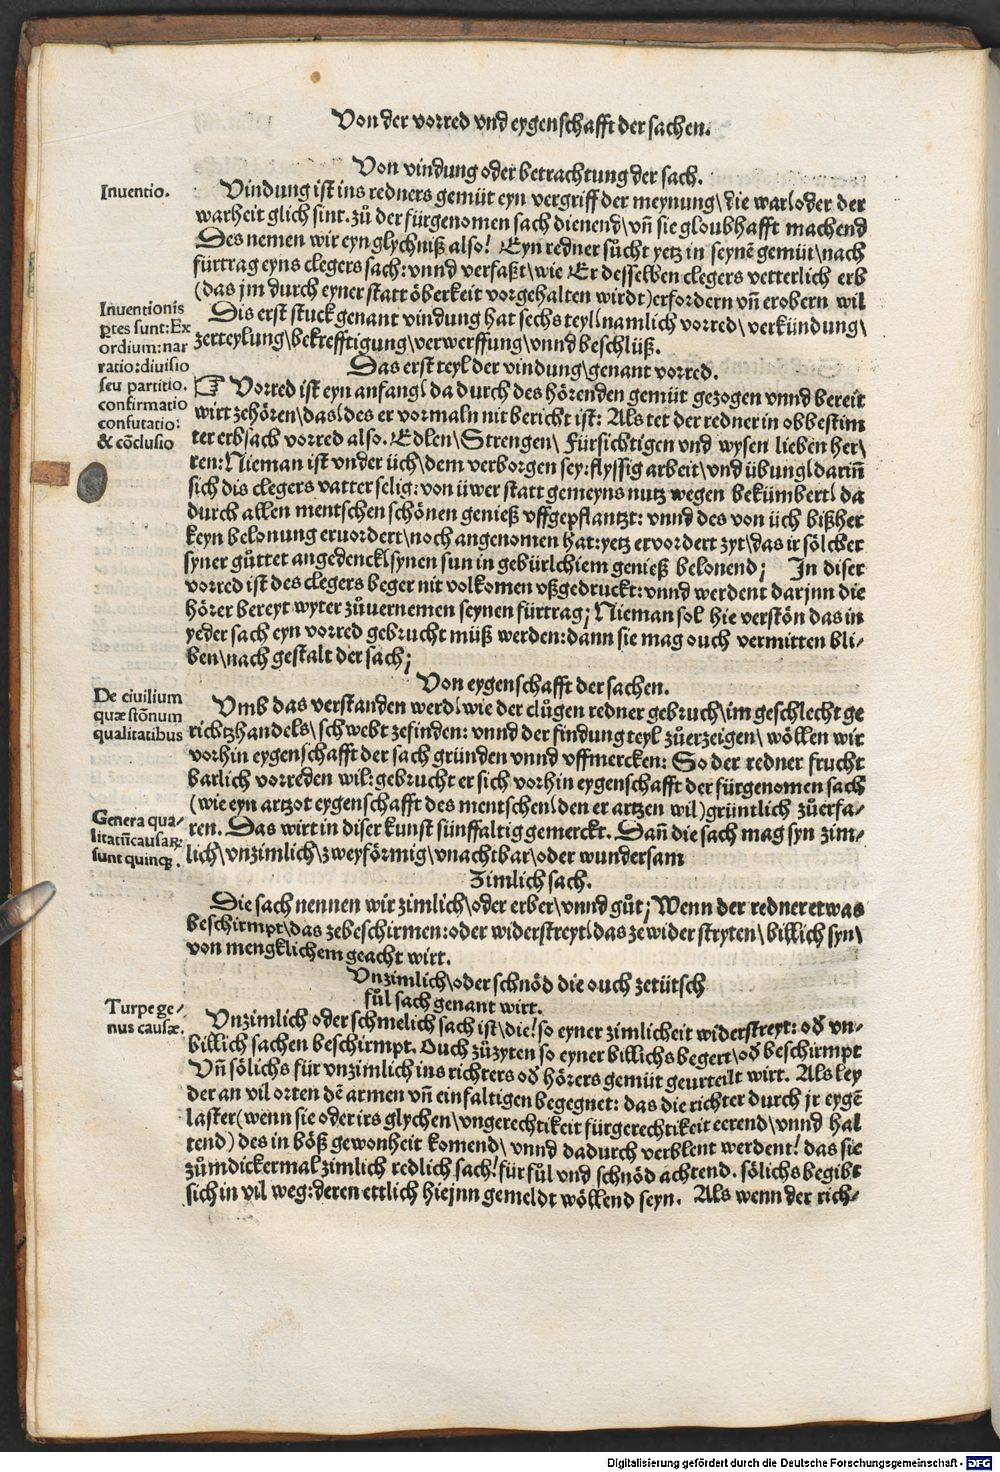 Von der vorred vnd eygenschafft der sachen.
Von vindung oder betrachtung der sach.
Inuentio.
Vindung ist ins redners gemüt eyn vergriff der meynung\ die war\ oder der
warheit glich sint. zů der fürgenomen sach dienend\ vñ sie gloubhafft machend
Des nemen wir eyn glychniß also! Eyn redner sůcht yetz in seynē gemüt\ nach
fürtrag eyns clegers sach: vnnd verfaßt\ wie Er desselben clegers vetterlich erb
(das jm durch eyner statt öberkeit vorgehalten wirdt) erfordern vñ erobern wil
Dis erst stuck genant vindung hat sechs teyl\ namlich vorred\ verkündung\
zerteylung\ bekrefftigung\ verwerffung\ vnnd beschlüß.
Inuentionis
ꝑtes sunt: Ex
ordium: nar
ratio: diuisio
seu partitio.
confirmatio
confutatio:
& cōclusio
Das erst teyl der vindung\ genant vorred.
☞ Vorred ist eyn anfang\ da durch des hörenden gemüt gezogen vnnd bereit
wirt zehören\ das\ des er vormaln nit bericht ist: Als tet der redner in obbestim
ter erbsach vorred also. Edlen\ Strengen\ Fürsichtigen vnd wysen lieben her\
ren: Nieman ist vnder üch\ dem verborgen sey: flyssig arbeit\ vnd übung\ darin̄
sich dis clegers vatter selig: von üwer statt gemeyns nutz wegen bekümbert\ da
durch allen mentschen schönen genieß vffgepflantzt: vnnd des von üch bißher
keyn belonung eruordert\ noch angenomen hat: yetz ervordert zyt\ das ir sölcher
syner gůttet angedenck\ synen sun in gebürlchiem genieß belonend; In diser
vorred ist des clegers beger nit volkomen vßgedruckt: vnnd werdent darjnn die
hörer bereyt wyter zůuernemen seynen fürtrag; Nieman sol hie verstön das in
yeder sach eyn vorred gebrucht müß werden: dann sie mag ouch vermitten bli-
ben\ nach gestalt der sach;
Von eygenschafft der sachen.
De ciuilium
quæstōnum
qualitatibus
Vmb das verstanden werd\ wie der clůgen redner gebruch\ im geschlecht ge
richtzhandels\ schwebt zefinden: vnnd der findung teyl zůerzeigen\ wöllen wir
vorhin eygenschafft der sach gründen vnnd vffmercken: So der redner frucht
barlich vorreden wil: gebrucht er sich vorhin eygenschafft der fürgenomen sach
(wie eyn artzot eygenschafft des mentschen\ den er artzen wil) grüntlich zůerfa-
ren. Das wirt in diser kunst fünffaltig gemerckt. Dañ die sach mag syn zim-
lich\ vnzimlich\ zweyförmig\ vnachtbar\ oder wundersam
Genera qua-
litatū causaꝝ
sunt quinqꝫ.
Zimlich sach.
Die sach nennen wir zimlich\ oder erber\ vnnd gůt; Wenn der redner etwas
beschirmpt\ das zebeschirmen: oder widerstreyt\ das ze widerstryten\ billich syn\
von mengklichem geacht wirt.
Vnzimlich\ oder schnöd die ouch zetütsch
fůl sach genant wirt.
Turpe ge-
nus causæ.
Vnzimlich oder schmelich sach ist\ die! so eyner zimlicheit widerstreyt: od̄ vn-
billich sachen beschirmpt. Ouch zůzyten so eyner billichs begert\ od̄ beschirmpt
Vñ sölichs für vnzimlich ins richters od̄ hörers gemüt geurteilt wirt. Als ley
der an vil orten dē armen vñ einfaltigen begegnet: das die richter durch jr eygē
laster (wenn sie oder irs glychen\ vngerechtikeit für gerechtikeit eerend\ vnnd hal
tend) des in böß gewonheit komend\ vnnd dadurch verblent werdent! das sie
zům dickermal zimlich redlich sach! für fůl vnd schnöd achtend. sölichs begibt
sich in vil weg: deren ettlich hiejnn gemeldt wöllend seyn. Als wenn der rich-
Digitalisierung gefördert durch die Deutsche Forschungsgemeinschaft - DFG